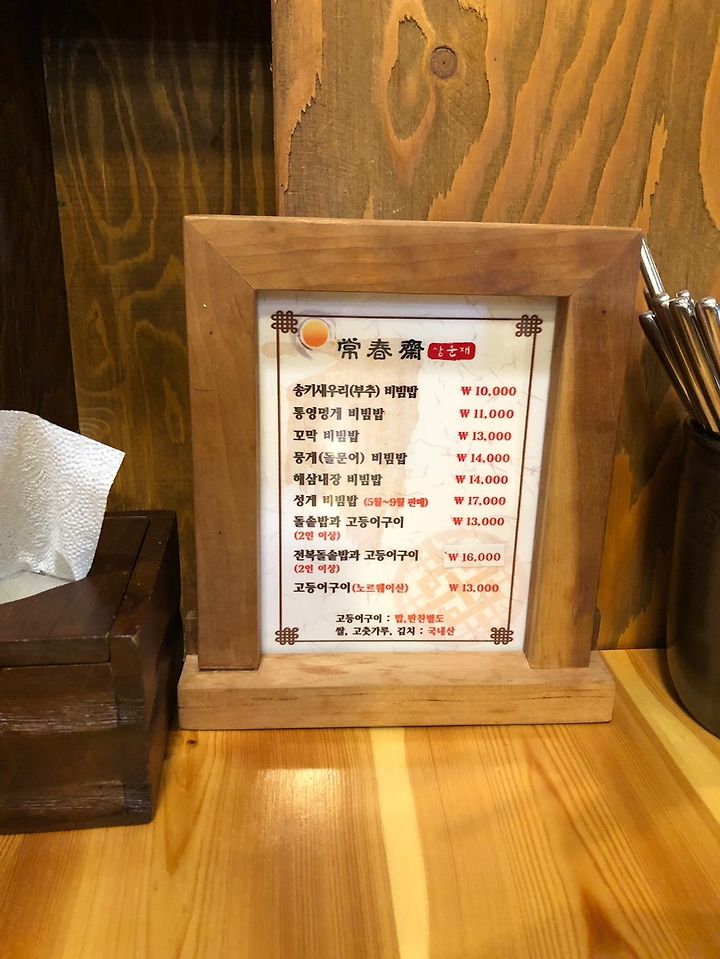 常春齋 상춘재
송키새우리(부추) 비빔밥 ₩ 10,000
통영멍게 비빔밥 ₩ 11,000
꼬막 비빔밥 ₩ 13,000
뭉게(돌문어) 비빔밥 ₩ 14,000
해삼내장 비빔밥 ₩ 14,000
성게 비빔밥 (5월~9월 판매) ₩ 17,000
돌솥밥과 고등어구이 ₩ 13,000
(2인 이상)
전복돌솥밥과 고등어구이 ₩ 16,000
(2인 이상)
고등어구이(노르웨이산) ₩ 13,000
고등어구이 : 밥,반찬별도
쌀, 고춧가루, 김치 : 국내산